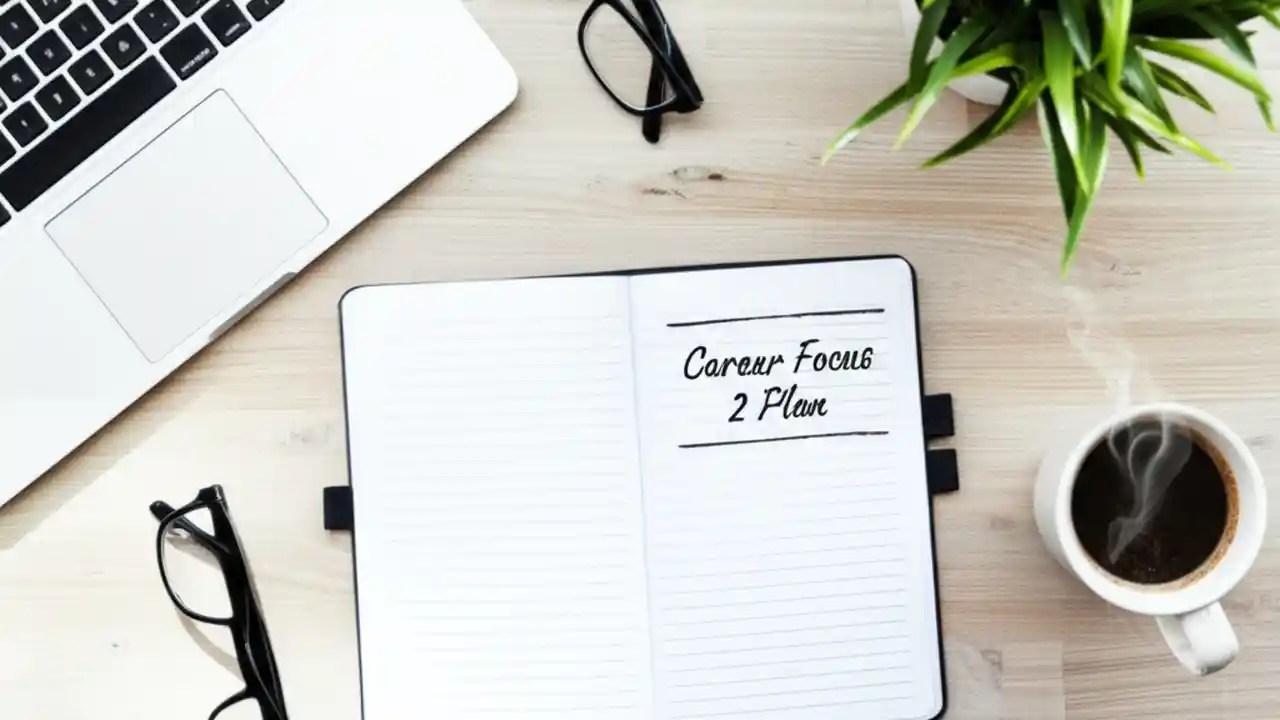 Career Focus
2 Plan